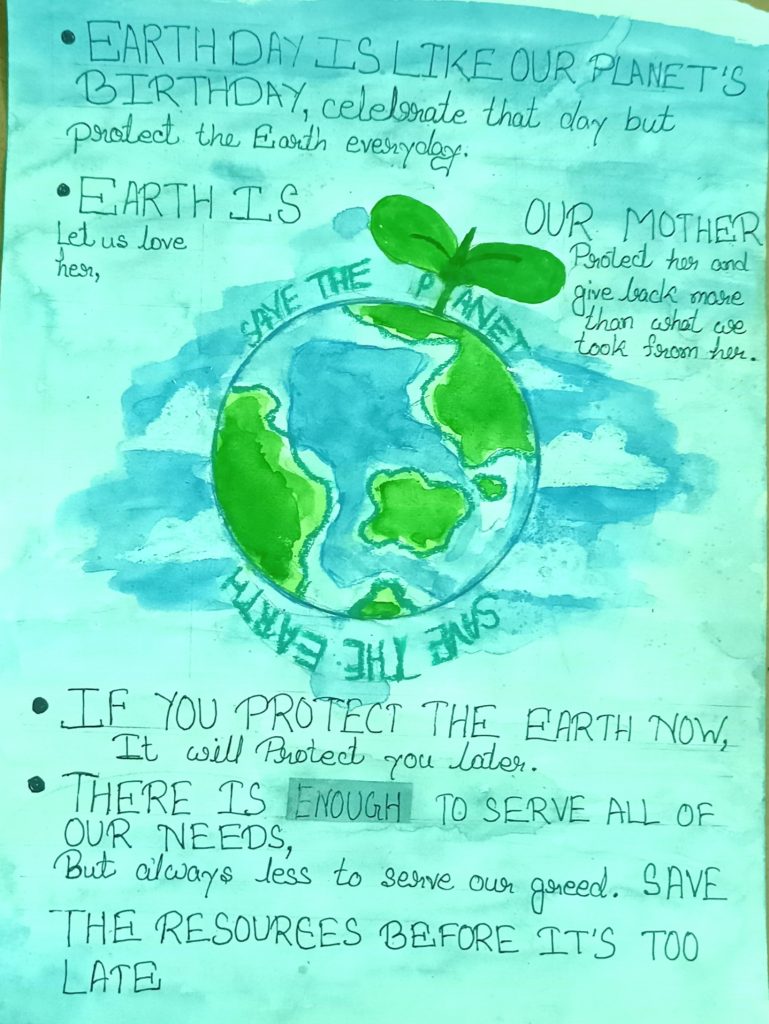 • EARTH DAY IS LIKE OUR PLANET'S
BIRTHDAY, celebrate that day but
protect the Earth everyday.
• EARTH IS OUR MOTHER
Let us love
her,
Protect her and
give back more
than what we
took from her.
SAVE THE PLANET
SAVE THE EARTH
• IF YOU PROTECT THE EARTH NOW,
It will Protect you later.
• THERE IS ENOUGH TO SERVE ALL OF
OUR NEEDS,
But always less to serve our greed. SAVE
THE RESOURCES BEFORE IT'S TOO
LATE